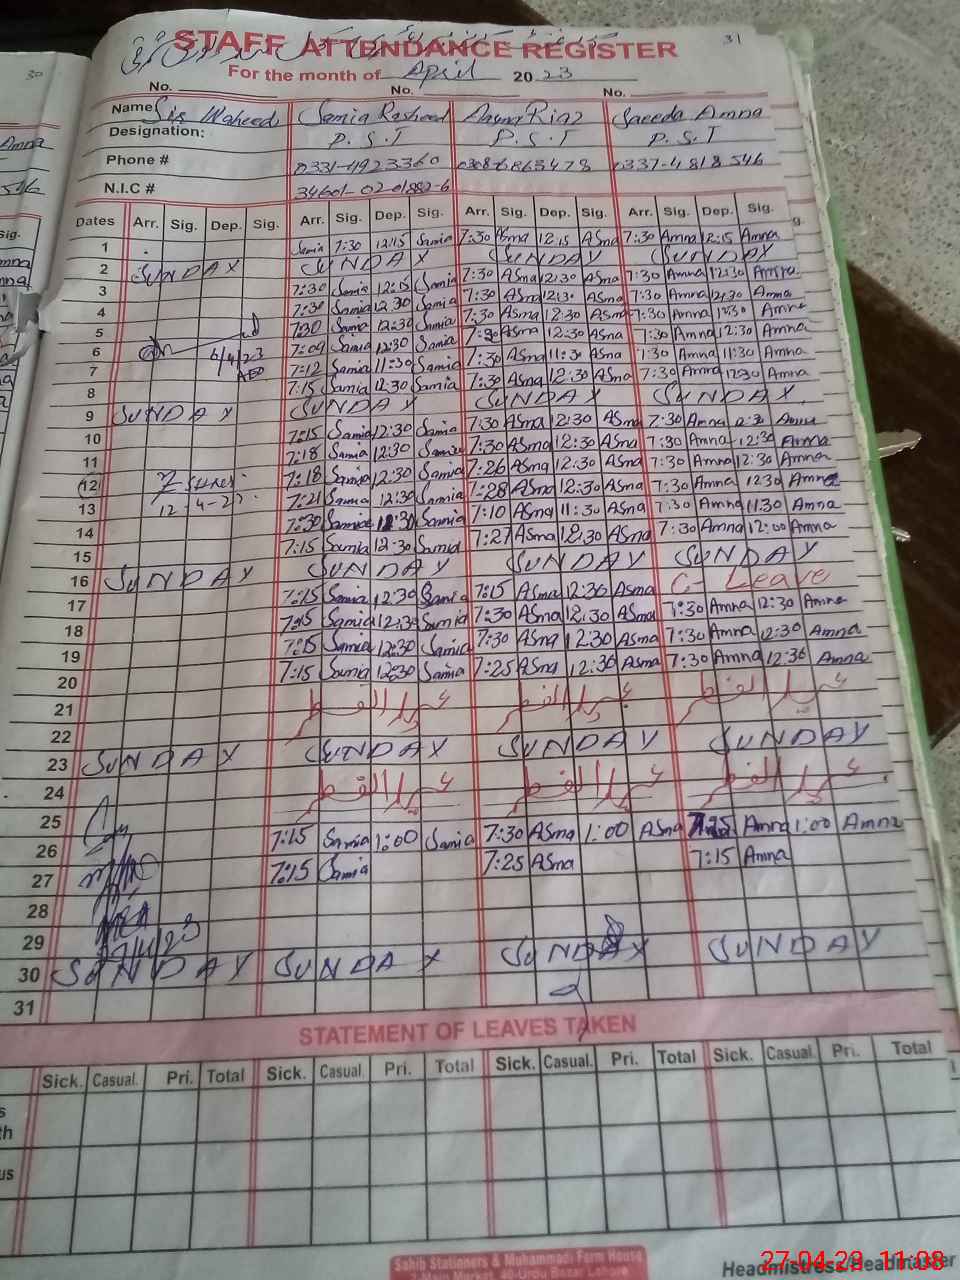 31
STAFF ATTENDANCE REGISTER
For the month of April 2023
No. No. No.
Name: Sir Waheed Samia Rasheed Asma Riaz Saeeda Amna
Designation: P.S.T P.S.T P.S.T
Phone # 0331-4923360 0337-4818546
N.I.C #
Dates Arr. Sig. Dep. Sig. Arr. Sig. Dep. Sig. Arr. Sig. Dep. Sig. Arr. Sig. Dep. Sig.
1 Samia 7:30 12:15 Samia 7:30 Asma 12:15 ASma 7:30 Amna 12:15 Amna
2 SUNDAY SUNDAY SUNDAY SUNDAY
3 7:30 Samia 12:15 Samia 7:30 ASma 12:30 ASma 7:30 Amna 12:30 Amna
4 7:30 Samia 12:30 Samia 7:30 ASma 12:30 ASma 7:30 Amna 12:30 Amna
5 7:30 Samia 12:30 Samia 7:30 ASma 12:30 ASma 7:30 Amna 12:30 Amna
6 4/4/23 7:09 Samia 12:30 Samia 7:30 Asma 12:30 ASma 7:30 Amna 12:30 Amna
7 AEO 7:12 Samia 11:30 Samia 7:30 ASma 11:30 ASma 7:30 Amna 11:30 Amna
8 7:15 Samia 12:30 Samia 7:30 ASma 12:30 ASma 7:30 Amna 12:30 Amna
9 SUNDAY SUNDAY SUNDAY SUNDAY
10 7:15 Samia 12:30 Samia 7:30 ASma 12:30 ASma 7:30 Amna 12:30 Amna
11 7:18 Samia 12:30 Samia 7:30 ASma 12:30 ASma 7:30 Amna 12:30 Amna
12 7:18 Samia 12:30 Samia 7:26 ASma 12:30 ASma 7:30 Amna 12:30 Amna
13 12-4-23 7:21 Samia 12:30 Samia 7:28 ASma 12:30 ASma 7:30 Amna 12:30 Amna
14 7:30 Samia 11:30 Samia 7:10 ASma 11:30 ASma 7:30 Amna 11:30 Amna
15 7:15 Samia 12:30 Samia 7:27 ASma 12:30 ASma 7:30 Amna 12:00 Amna
16 SUNDAY SUNDAY SUNDAY SUNDAY
17 7:15 Samia 12:30 Samia 7:15 ASma 12:30 Asma C-Leave
18 7:15 Samia 12:30 Samia 7:30 ASma 12:30 ASma 7:30 Amna 12:30 Amna
19 7:15 Samia 12:30 Samia 7:30 ASma 12:30 ASma 7:30 Amna 12:30 Amna
20 7:15 Samia 12:30 Samia 7:25 ASma 12:30 ASma 7:30 Amna 12:30 Amna
21 عیدالفطر عیدالفطر عیدالفطر
22
23 SUNDAY SUNDAY SUNDAY SUNDAY
24 عیدالفطر عیدالفطر عیدالفطر
25
26 7:15 Samia 1:00 Samia 7:30 ASma 1:00 ASma 7:15 Amna 1:00 Amna
27 7:15 Samia 7:25 ASma 7:15 Amna
28
29
30 SUNDAY SUNDAY SUNDAY SUNDAY
31
STATEMENT OF LEAVES TAKEN
Sick. Casual. Pri. Total Sick. Casual. Pri. Total Sick. Casual. Pri. Total Sick. Casual. Pri. Total
Sahib Stationers & Muhammadi Form House
Headmistress/Headmaster
27-04-23 11:08